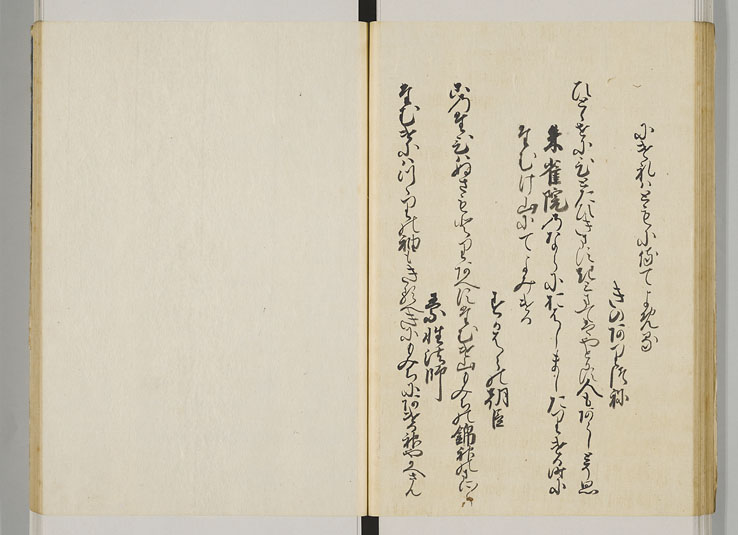 にけれはともに侍てよめる
きのありつね
ひとゝせにひとたひきます君まてはやとかす人もあらしとそ思
朱雀院のならにおはしましたりける時に
たむけ山にてよみける
すかはらの朝臣
このたひはぬさもとりあへすたむけ山もみちの錦神のまに〱
素性法師
たむけにはつゝりの袖もきるへきにもみちにあける神やかへさん